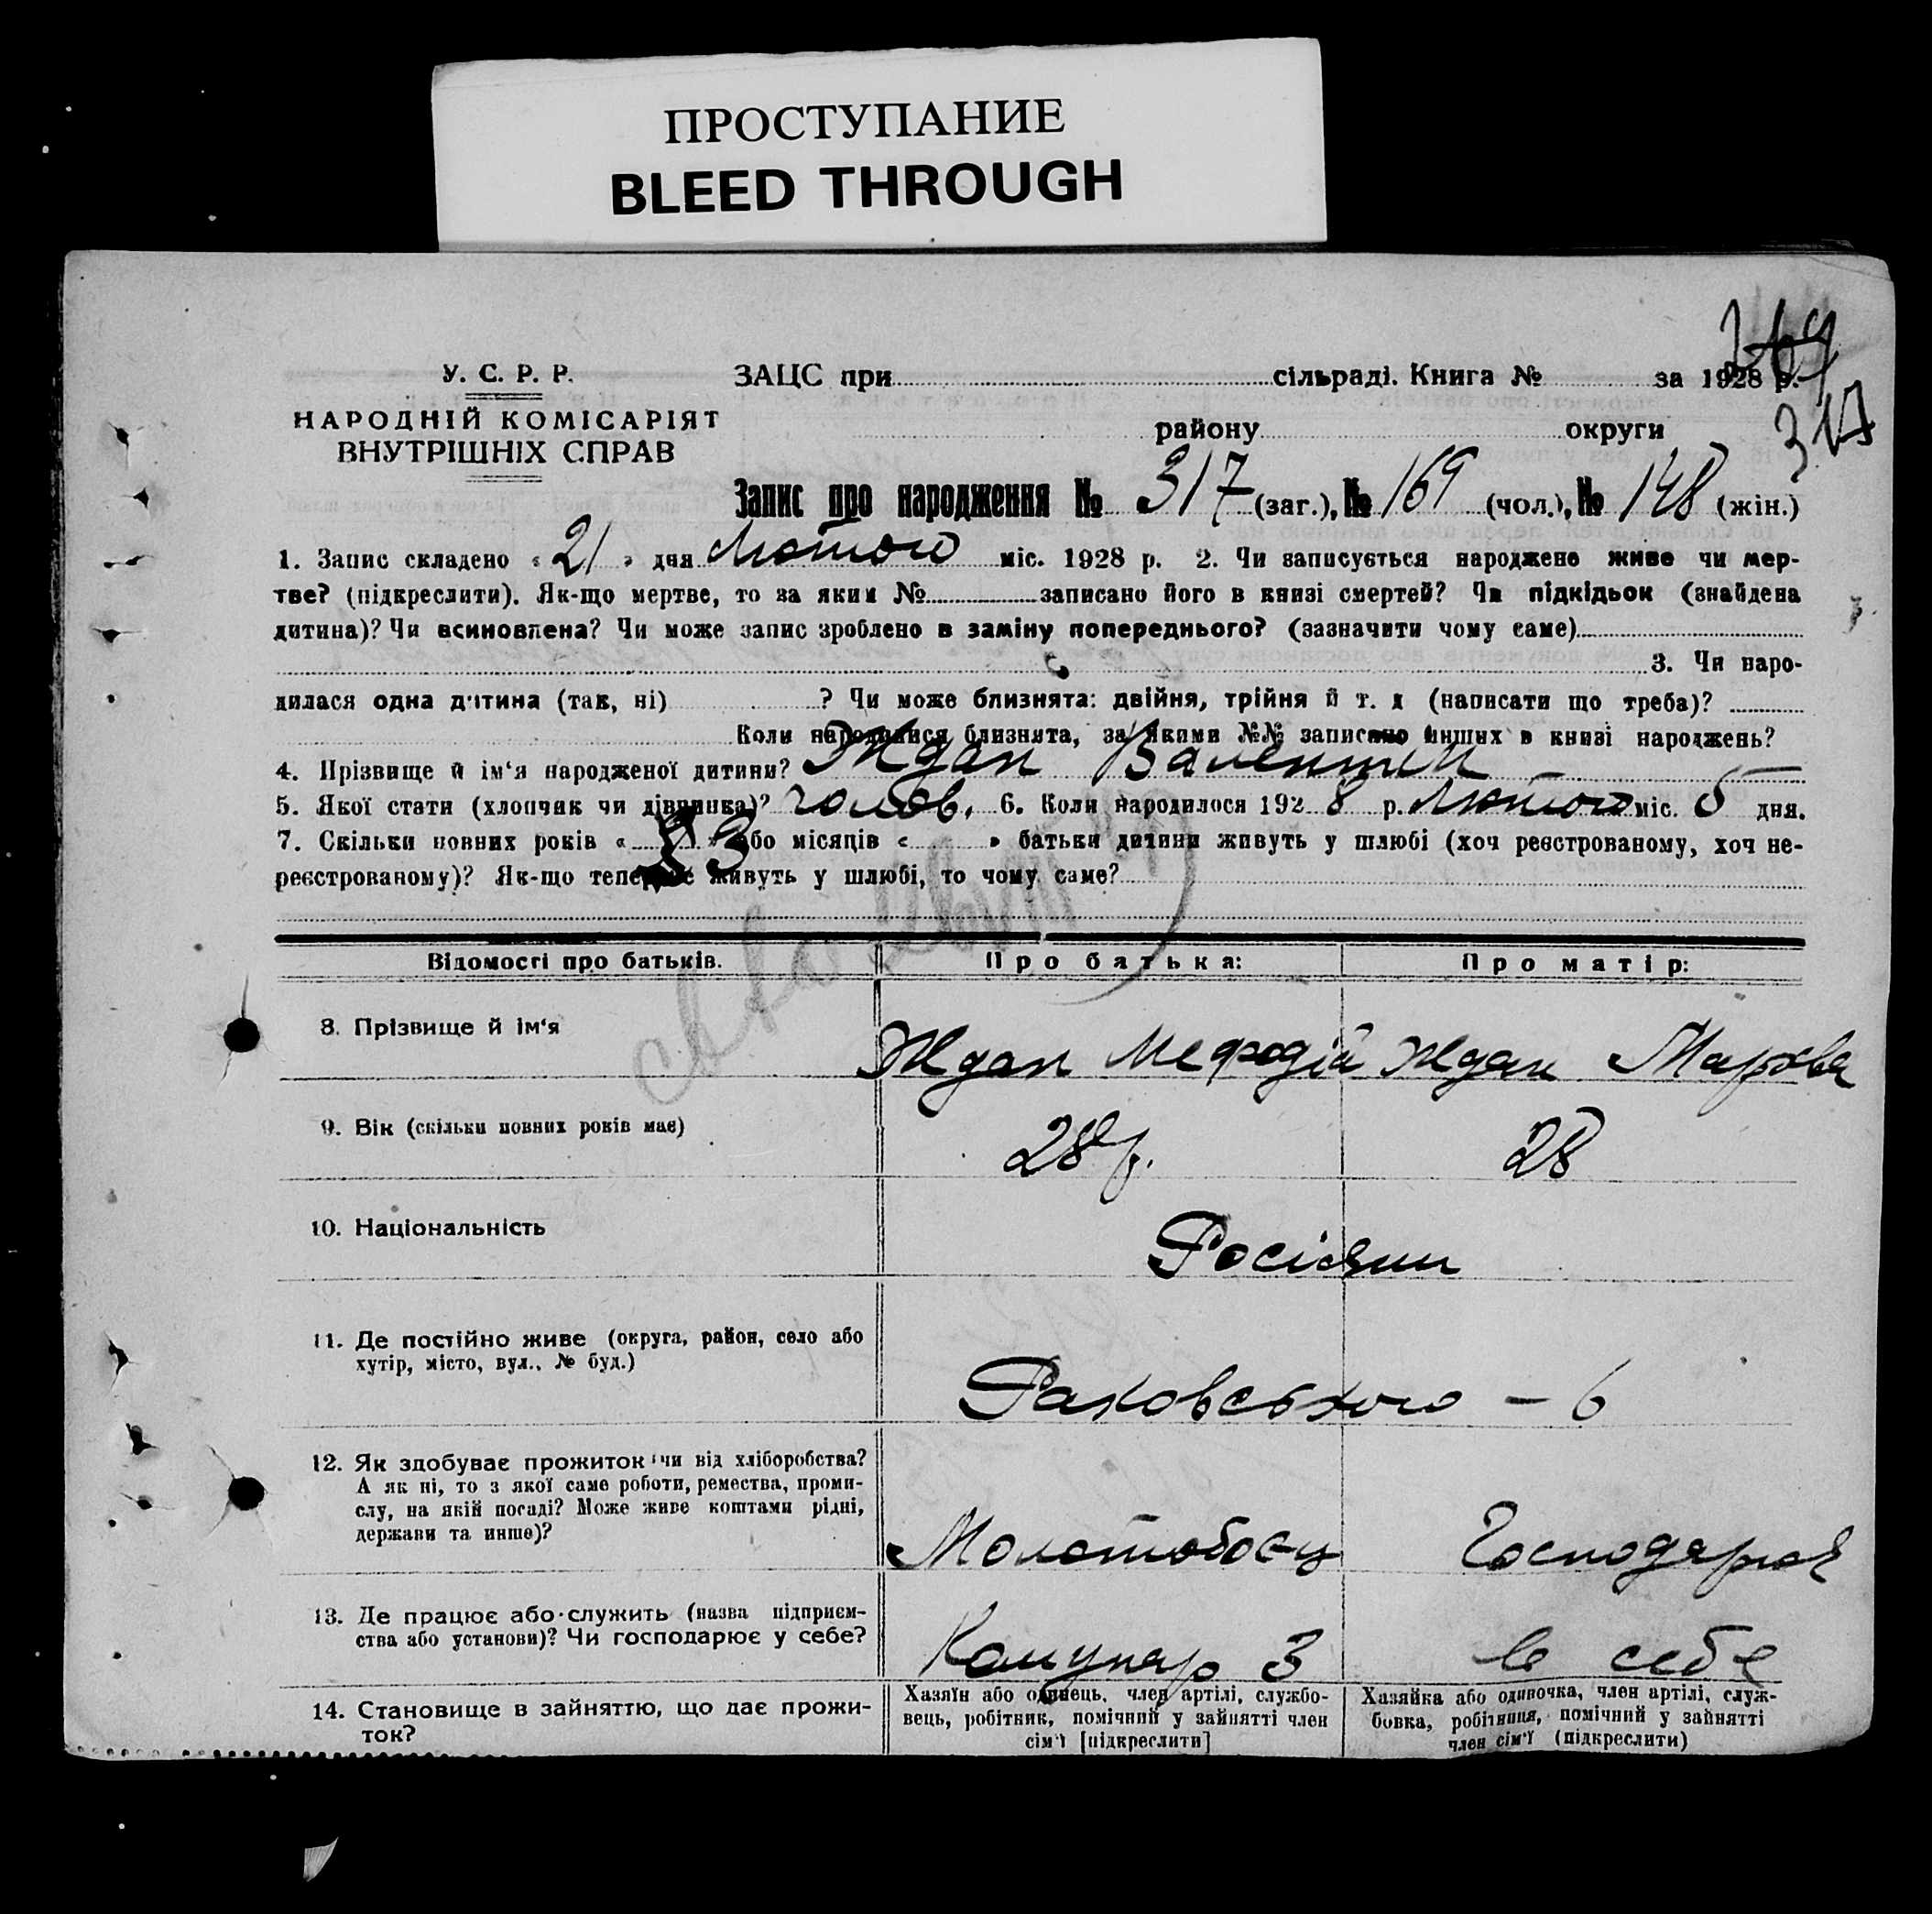 ПРОСТУПАНИЕ
BLEED THROUGH
269
317
У. С. Р. Р.
НАРОДНІЙ КОМІСАРІЯТ
ВНУТРІШНІХ СПРАВ
ЗАЦС при сільраді. Книга № за 1928 р.
району округи
Запис про народження № 317 (заг.), № 169 (чол.), № 148 (жін.)
1. Запис складено « 21 » дня Лютого міс. 1928 р. 2. Чи записується народжене живе чи мер-
тве? (підкреслити). Як-що мертве, то за яким № записано його в книзі смертей? Чи підкідьок (знайдена
дитина)? Чи всиновлена? Чи може запис зроблено в заміну попереднього? (зазначити чому саме)
3. Чи наро-
дилася одна дитина (так, ні) ? Чи може близнята: двійня, трійня й т. д (написати що треба)?
Коли народилися близнята, за якими №№ записано инших в книзі народжень?
4. Прізвище й ім‘я народженої дитини? Ждан Валентин
5. Якої стати (хлопчик чи дівчинка)? чолов. 6. Коли народилося 1928 р. Лютого міс. 5 дня.
7. Скільки повних років « 3 » або місяців « » батьки дитини живуть у шлюбі (хоч реєстрованому, хоч не-
реєстрованому)? Як-що тепер не живуть у шлюбі, то чому саме?
Відомості про батьків. Про батька: Про матір:
8. Прізвище й ім‘я Ждан Мефодій Ждан Марква
9. Вік (скільки повних років має) 28 р. 28
10. Національність Росіяни
11. Де постійно живе (округа, район, село або
хутір, місто, вул., № буд.) Раковського – 6
12. Як здобуває прожиток: чи від хліборобства?
А як ні, то з якої саме роботи, ремества, проми-
слу, на якій посаді? Може живе коштами рідні,
держави та инше)? Молотобоєц Господарює
13. Де працює або служить (назва підприєм-
ства або установи)? Чи господарює у себе? Комунар 3 в себе
14. Становище в зайняттю, що дає прожи-
ток?
Хазяїн або одинець, член артілі, службо-
вець, робітник, помічний у зайнятті член
сім‘ї [підкреслити]
Хазяйка або одиночка, член артілі, служ-
бовка, робітниця, помічний у зайнятті
член сім‘ї (підкреслити)